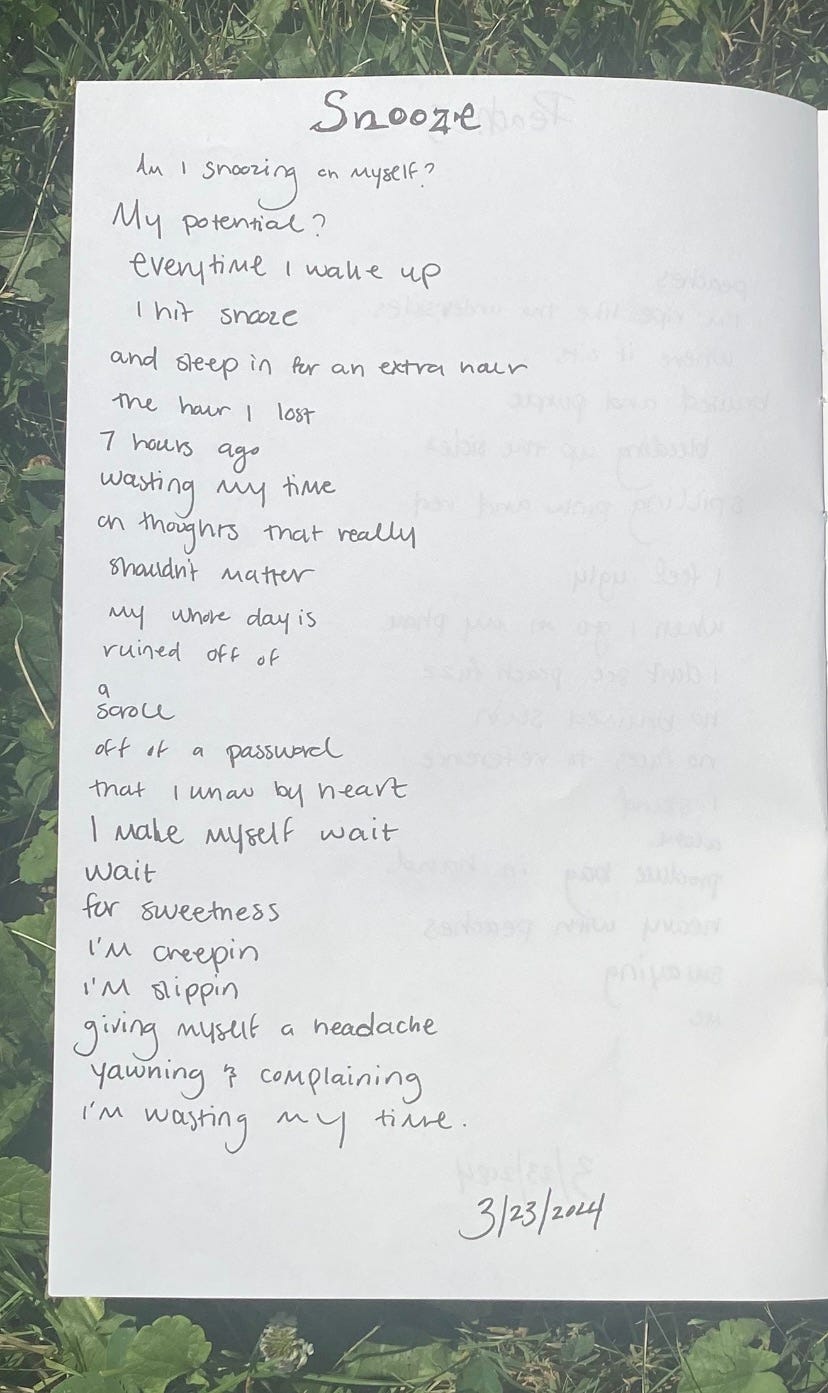 Snooze
Am I snoozing on myself?
My potential?
everytime I wake up
I hit snooze
and sleep in for an extra hour
the hour I lost
7 hours ago
wasting my time
on thoughts that really
shouldn't matter
my whole day is
ruined off of
a
scroll
off of a password
that I know by heart
I make myself wait
wait
for sweetness
I'm creepin
I'm slippin
giving myself a headache
yawning & complaining
I'm wasting my time.
3/23/2024